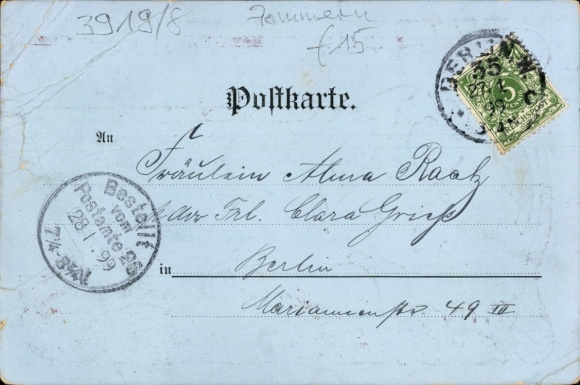 3919/8
Pommern
£15
BERLIN
35
99
5
REICHSPOST
Postkarte.
An
Fräulein Alma Raatz
Frl. Clara
Bestellt
vom
Postamte 26
28/1 99
7¼-8¼N
in Berlin
Mariannenstr. 49 III